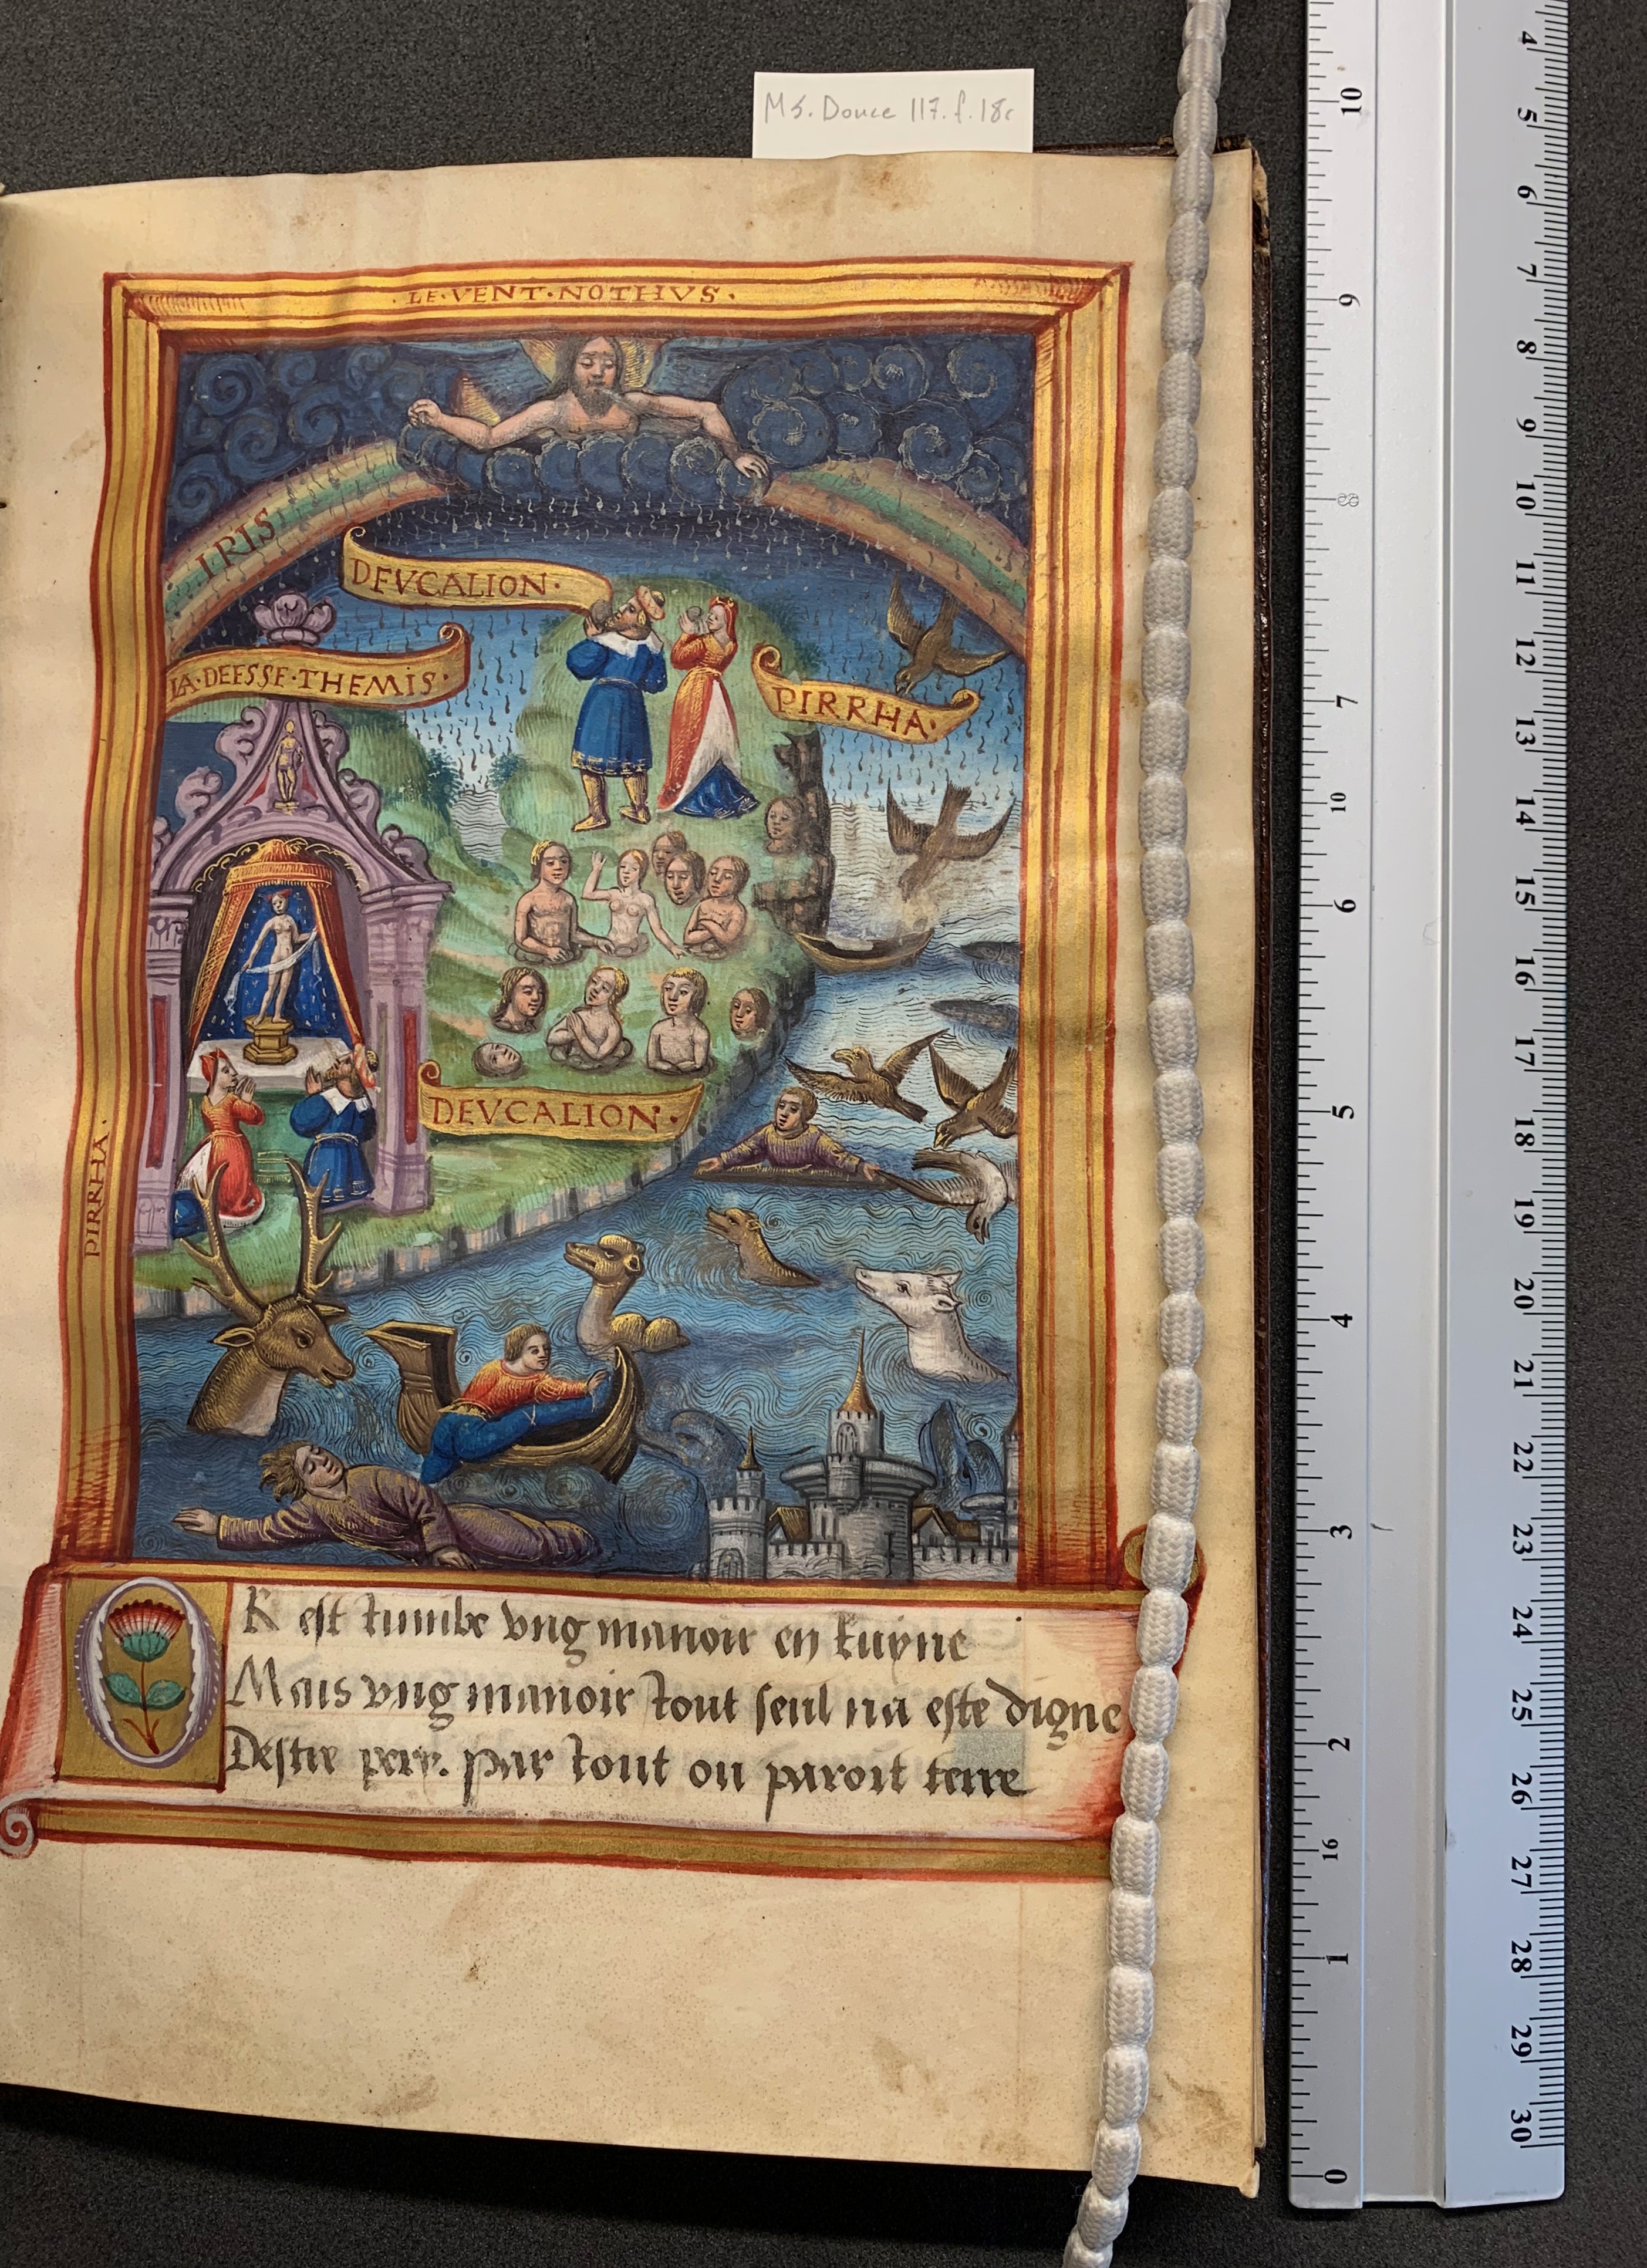 MS. Douce 117. f. 18r
·LE·VENT·NOTHVS·
IRIS
DEVCALION·
LA·DEESSE·THEMIS·
PIRRHA·
DEVCALION·
PIRRHA·
OR est tumbe vng manoir en ruyne
Mais vng manoir tout seul na este digne
Destre pery. par tout ou paroit terre
10
9
8
7
10
6
5
4
3
2
16
1
0
4
5
6
7
8
9
10
11
12
13
14
15
16
17
18
19
20
21
22
23
24
25
26
27
28
29
30